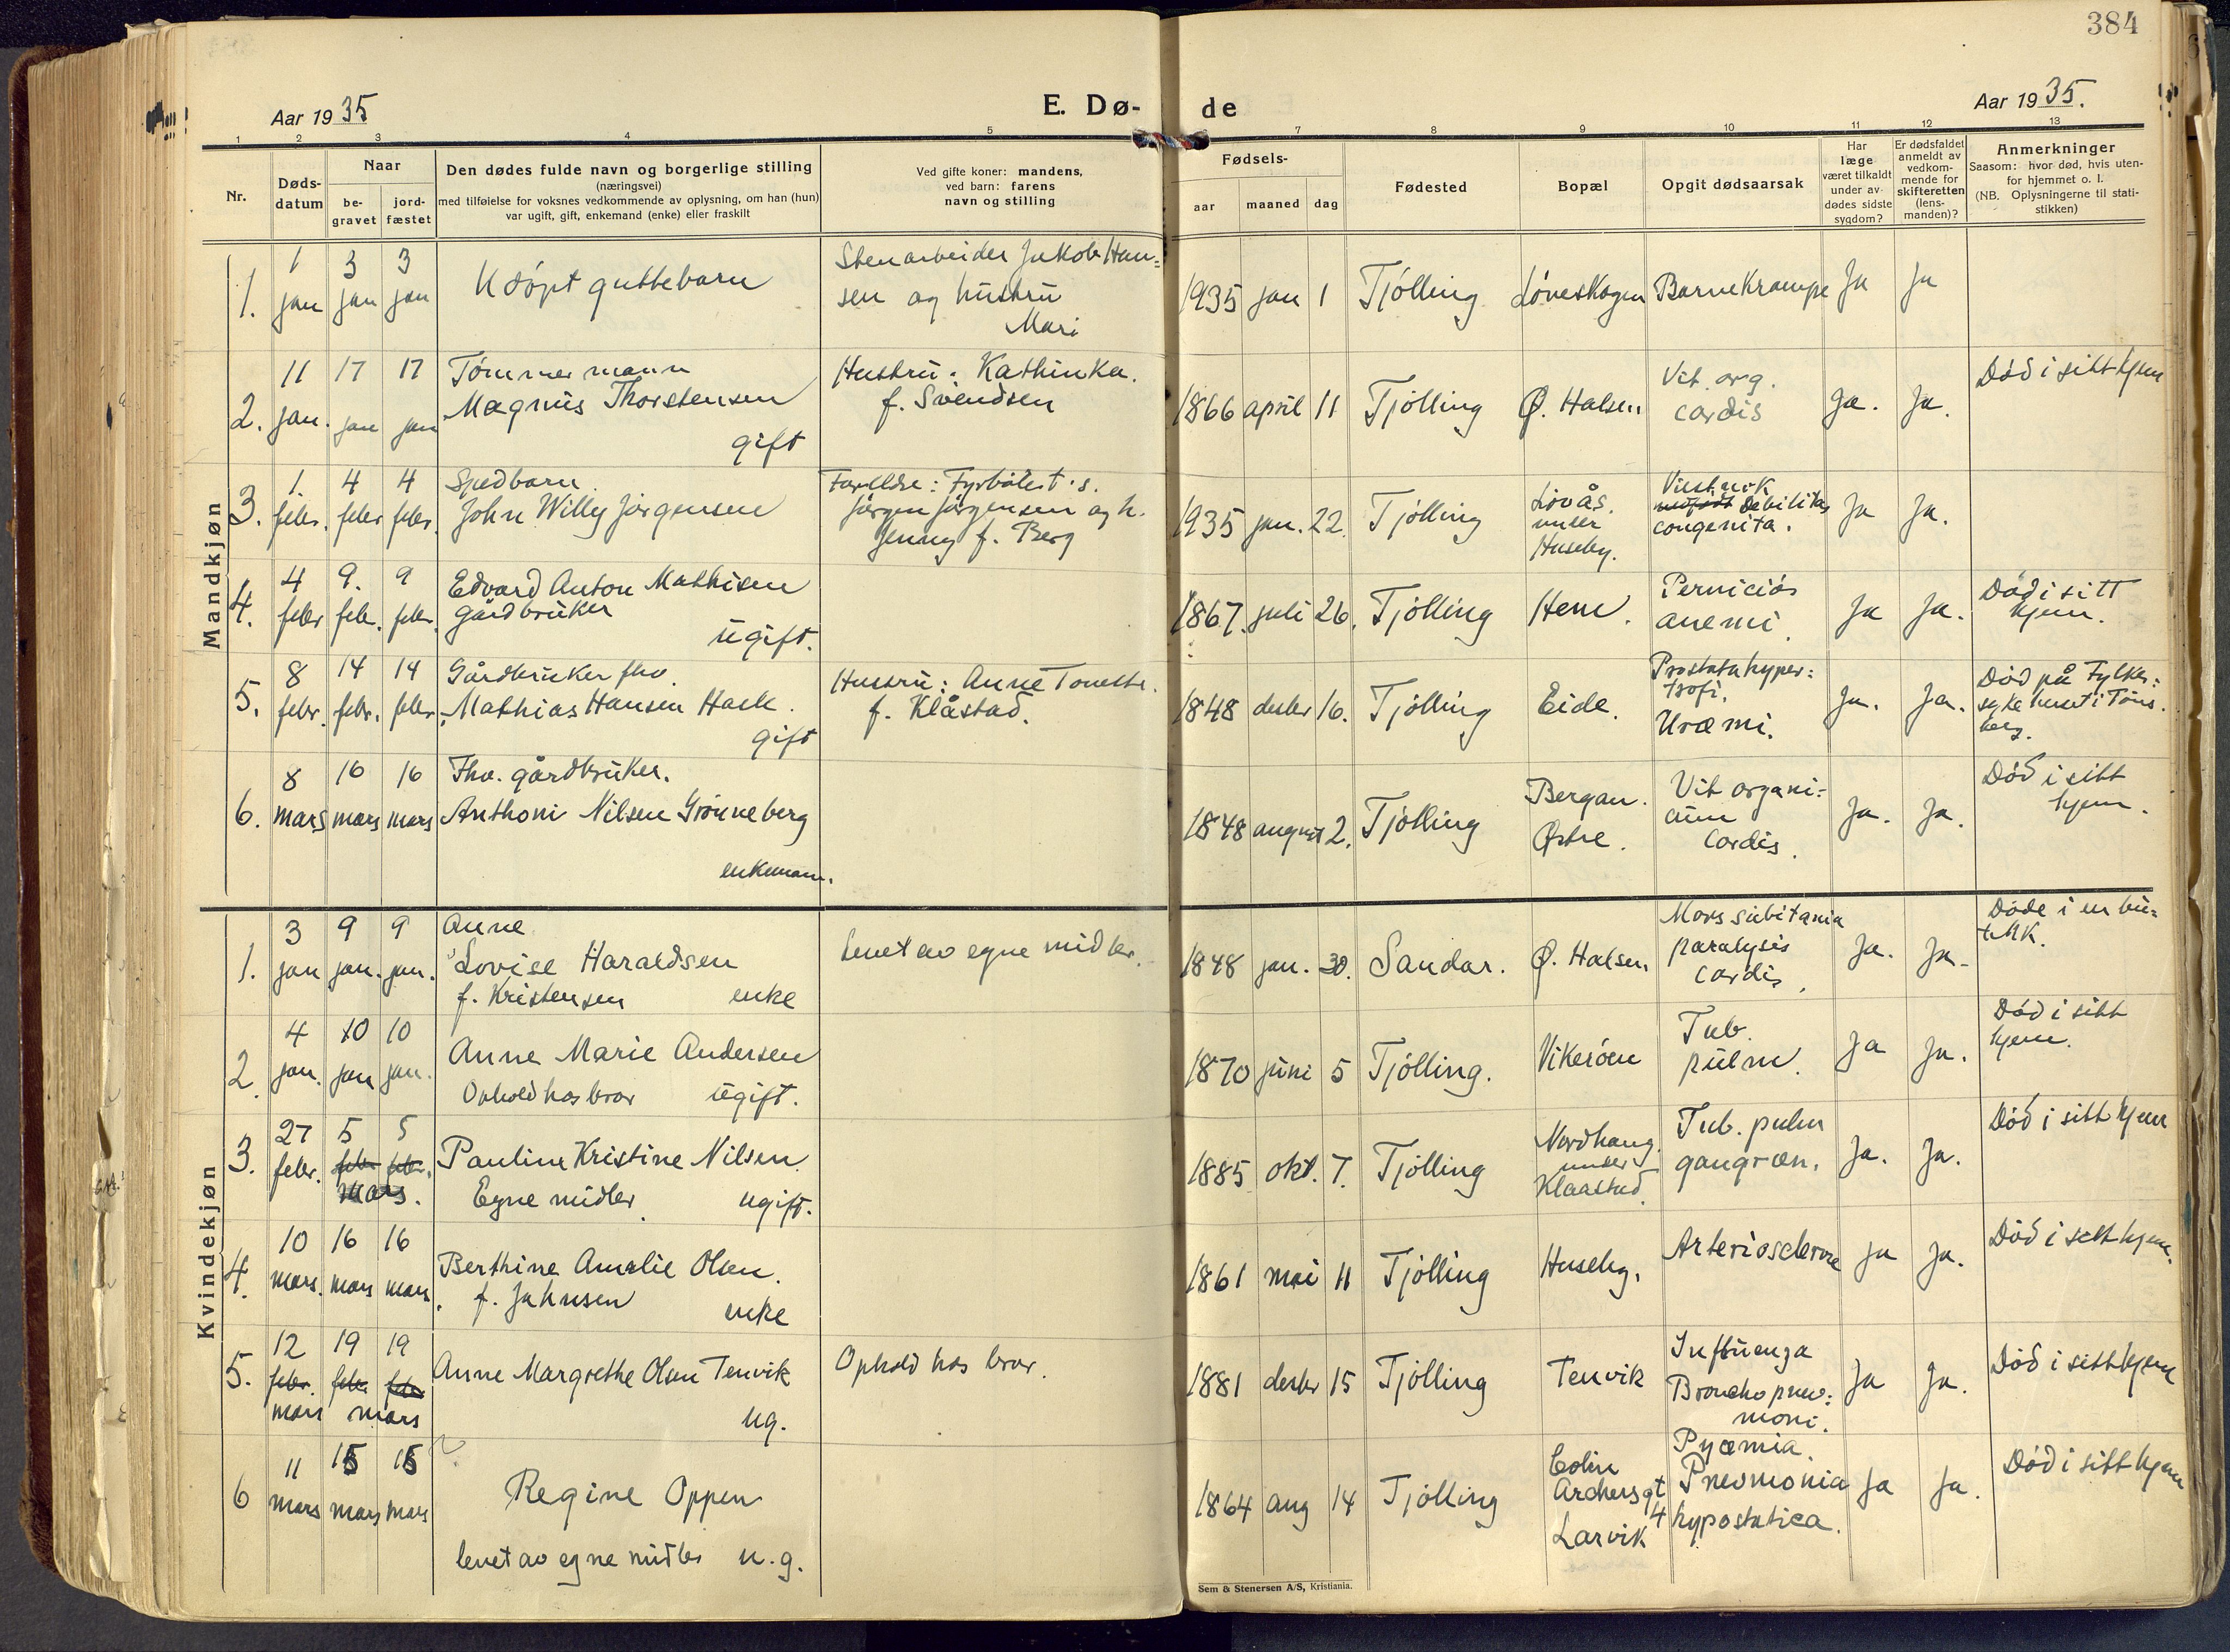 384
Aar 1935
E. Dø-
de
Aar 1935.
1 2 3 4 5 7 8 9 10 11 12 13
Nr.
Døds-
datum
Naar
be-
gravet
jord-
fæstet
Den dødes fulde navn og borgerlige stilling
(næringsvei)
med tilføielse for voksnes vedkommende av oplysning, om han (hun)
var ugift, gift, enkemand (enke) eller fraskilt
Ved gifte koner: mandens,
ved barn: farens
navn og stilling
Fødsels-
aar maaned dag
Fødested
Bopæl
Opgit dødsaarsak
Har
læge
været tilkaldt
under av-
dødes sidste
sygdom?
Er dødsfaldet
anmeldt av
vedkom-
mende for
skifteretten
(lens-
manden)?
Anmerkninger
Saasom: hvor død, hvis uten-
for hjemmet o. l.
(NB. Oplysningerne til stati-
stikken)
Mandkjøn
1.
1 jan
3 jan
3 jan
Udöpt guttebarn
Stenarbeider Jakob Han=
sen og hustru
Mari
1935 jan 1
Tjölling
Löveskogen
Barnekrampe
Ja
Ja
2.
11 jan.
17 jan
17 jan
Tömmermann
Magnus Thorstensen
gift
Hustru: Kathinka.
f. Svendsen
1866 april 11
Tjölling
Ø. Halsen
Vit. org.
cordis
Ja.
Ja.
Död i sitt hjem
3.
1. febr.
4 febr
4 febr.
Spedbarn.
John Willy Jörgensen
Foreldre: Fyrböter t.s.
Jörgen Jörgensen og h.
Jenny f. Berg
1935 jan. 22.
Tjölling
Lövås.
under
Huseby.
Debilitas
congenita.
Ja
Ja.
4.
4 febr
9. febr.
9 febr.
Edvard Anton Mathisen
Gårdbruker
ugift.
1867. juli 26.
Tjölling
Hem.
Perniciös
anemi.
Ja
Ja.
Död i sitt
hjem.
5.
8 febr.
14 febr.
14 febr.
Gårdbruker fhv.
Mathias Hansen Hask.
gift
Hustru: Anne Tonette.
f. Klåstad.
1848 desbr 16.
Tjölling
Eide.
Prostatahyper=
trofi.
Uræmi.
Ja.
Ja.
Död på Fylkes=
sykehuset i Töns=
berg.
6.
8 mars
16 mars
16 mars
Fhv. gårdbruker.
Anthoni Nilsen Grönneberg
enkemann.
1848 august 2.
Tjölling
Bergan.
Østre.
Vit organi=
cum
cordis.
Ja.
Ja.
Död i sitt
hjem.
Kvindekjøn
1.
3 jan
9 jan.
9 jan.
Anne
Lovise Haraldsen
f. Kristensen enke
Levet av egne midler.
1848 jan. 30.
Sandar.
Ø. Halsen
Mors subitania
paralysis
cordis.
Ja.
Ja.
Döde i en bu=
tikk.
2.
4 jan.
10 jan
10 jan.
Anne Marie Andersen
Ophold hos bror ugift.
1870 juni 5
Tjölling.
Vikeröen
Tub.
pulm.
Ja
Ja.
Död i sitt
hjem.
3.
27 febr.
5 febr
5 febr.
mars.
Pauline Kristine Nilsen
Egne midler. ugift.
1885 okt. 7.
Tjölling
Nordhaug.
under
Klaastad.
Tub. pulm
gangræn.
Ja.
Ja.
Död i sitt hjem
4.
10 mars.
16 mars
16 mars.
Berthine Amalie Olsen.
f. Jahnsen
enke
1861 mai 11
Tjölling
Huseby.
Arteriosclerose
Ja
Ja.
Död i sitt hjem.
5.
12 febr.
19 febr
19 febr
mars mars
Anne Margrethe Olsen Tenvik
ug.
Ophold hos bror.
1881 desbr 15
Tjölling
Tenvik
Influenza
Bronchopneu=
moni.
Ja
Ja.
Död i sitt hjem
6
11 mars
15 mars
15 mars
Regine Oppen
levet av egne midler u.g.
1864 aug 14
Tjölling
Colin
Archersgt
4
Larvik
Pyæmia.
Pneomonia
hypostatica.
Ja
Ja.
Död i sitt hjem
Sem & Stenersen A/S, Kristiania.